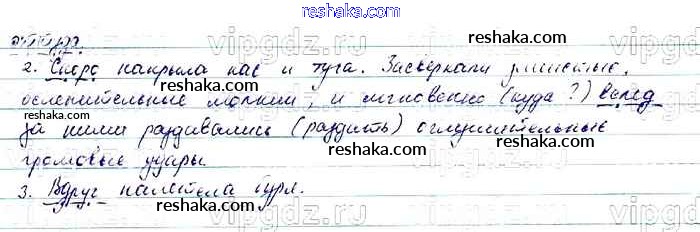 reshaka.com
2. Скоро накрыла нас и туча. Засверкали
reshaka.com
ослепительные молнии, и мгновенно (куда?) вслед
за ними раздавались (раздать) оглушительные
reshaka.com
громовые удары
reshaka.com
3. Вдруг налетела буря.
reshaka.com